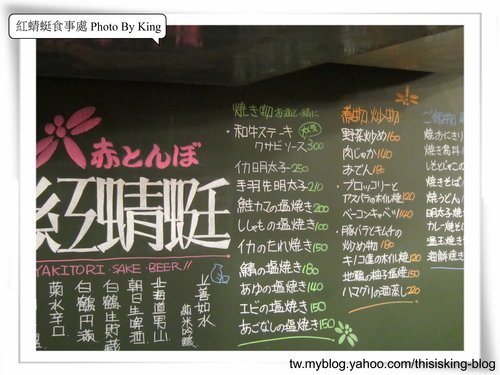 紅蜻蜓食事處 Photo By King
赤とんぼ
紅蜻蜓
YAKITORI・SAKE BEER//
上善如水
純米吟釀
北海道男山
朝日生啤酒
白鶴生貯藏
白鶴円満
菊水辛口
焼き物 お酒と一緒に
・和牛ステーキ
ワサビソース300
イカ明太子-250
手羽先明太子210
鮭カマの塩焼き200
ししゃもの塩焼き100
イカのたれ焼き150
鯖の塩焼き180
あゆの塩焼き140
エビの塩焼き150
あごなしの塩焼き150
煮物 炒め物
野菜炒め160
肉じゃが140
おでん180
・ブロッコリーと
アスパラのホイル焼120
・ベーコンキャベツ140
・豚バラとキムチの
炒め物180
・キノコ達のホイル焼120
・地鶏の柚子塩焼150
ハマグリの酒蒸し220
ご飯物
焼おにぎり
焼き鳥丼
焼きそば
焼うどん
明太子焼
カレー焼う
塩玉焼き
海鮮焼き
tw.myblog.yahoo.com/thisisking-blog